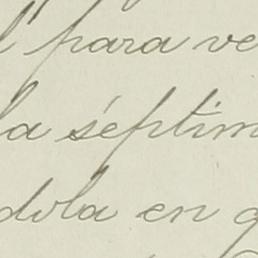 para ve
la séptim
dola en q